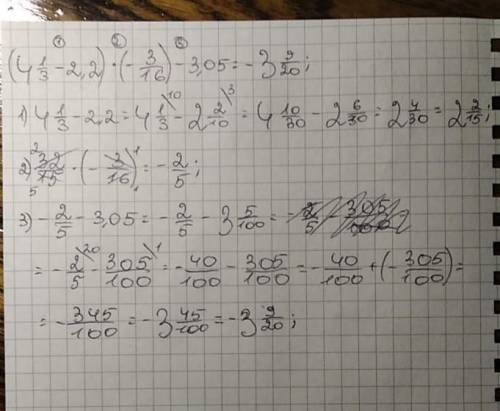 ① ② ③
(4 1/3 − 2,2) · (− 3/16) − 3,05 = − 3 9/20;
1) 4 1/3 − 2,2 = 4 1/3\10 − 2 2/10\3 = 4 10/30 − 2 6/30 = 2 4/30 = 2 2/15;
2) 32/15 · (− 3/16) = − 2/5;
3) − 2/5 − 3,05 = − 2/5 − 3 5/100 =
= − 2/5\20 − 305/100\1 = − 40/100 − 305/100 = − 40/100 + (− 305/100) =
= − 345/100 = − 3 45/100 = − 3 9/20;